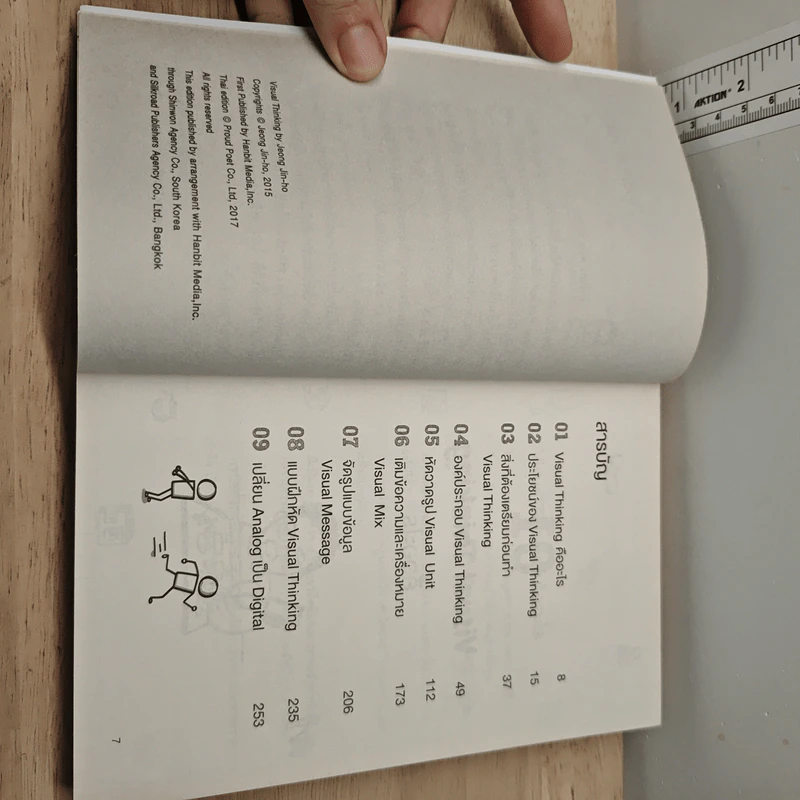 Visual Thinking by Jeong Jin-ho
Copyrights © Jeong Jin-ho, 2015
First Published by Hanbit Media,Inc.
Thai edition © Proud Poet Co., Ltd, 2017
All rights reserved
This edition published by arrangement with Hanbit Media,Inc.
through Shinwon Agency Co., South Korea
and Silkroad Publishers Agency Co., Ltd., Bangkok
สารบัญ
01 Visual Thinking คืออะไร 8
02 ประโยชน์ของ Visual Thinking 15
03 สิ่งที่ต้องเตรียมก่อนทำ
Visual Thinking 37
04 องค์ประกอบ Visual Thinking 49
05 หัดวาดรูป Visual Unit 112
06 เติมข้อความและเครื่องหมาย
Visual Mix 173
07 จัดรูปแบบข้อมูล
Visual Message 206
08 แบบฝึกหัด Visual Thinking 235
09 เปลี่ยน Analog เป็น Digital 253
7
AKTION
1 2
3 4 5 6